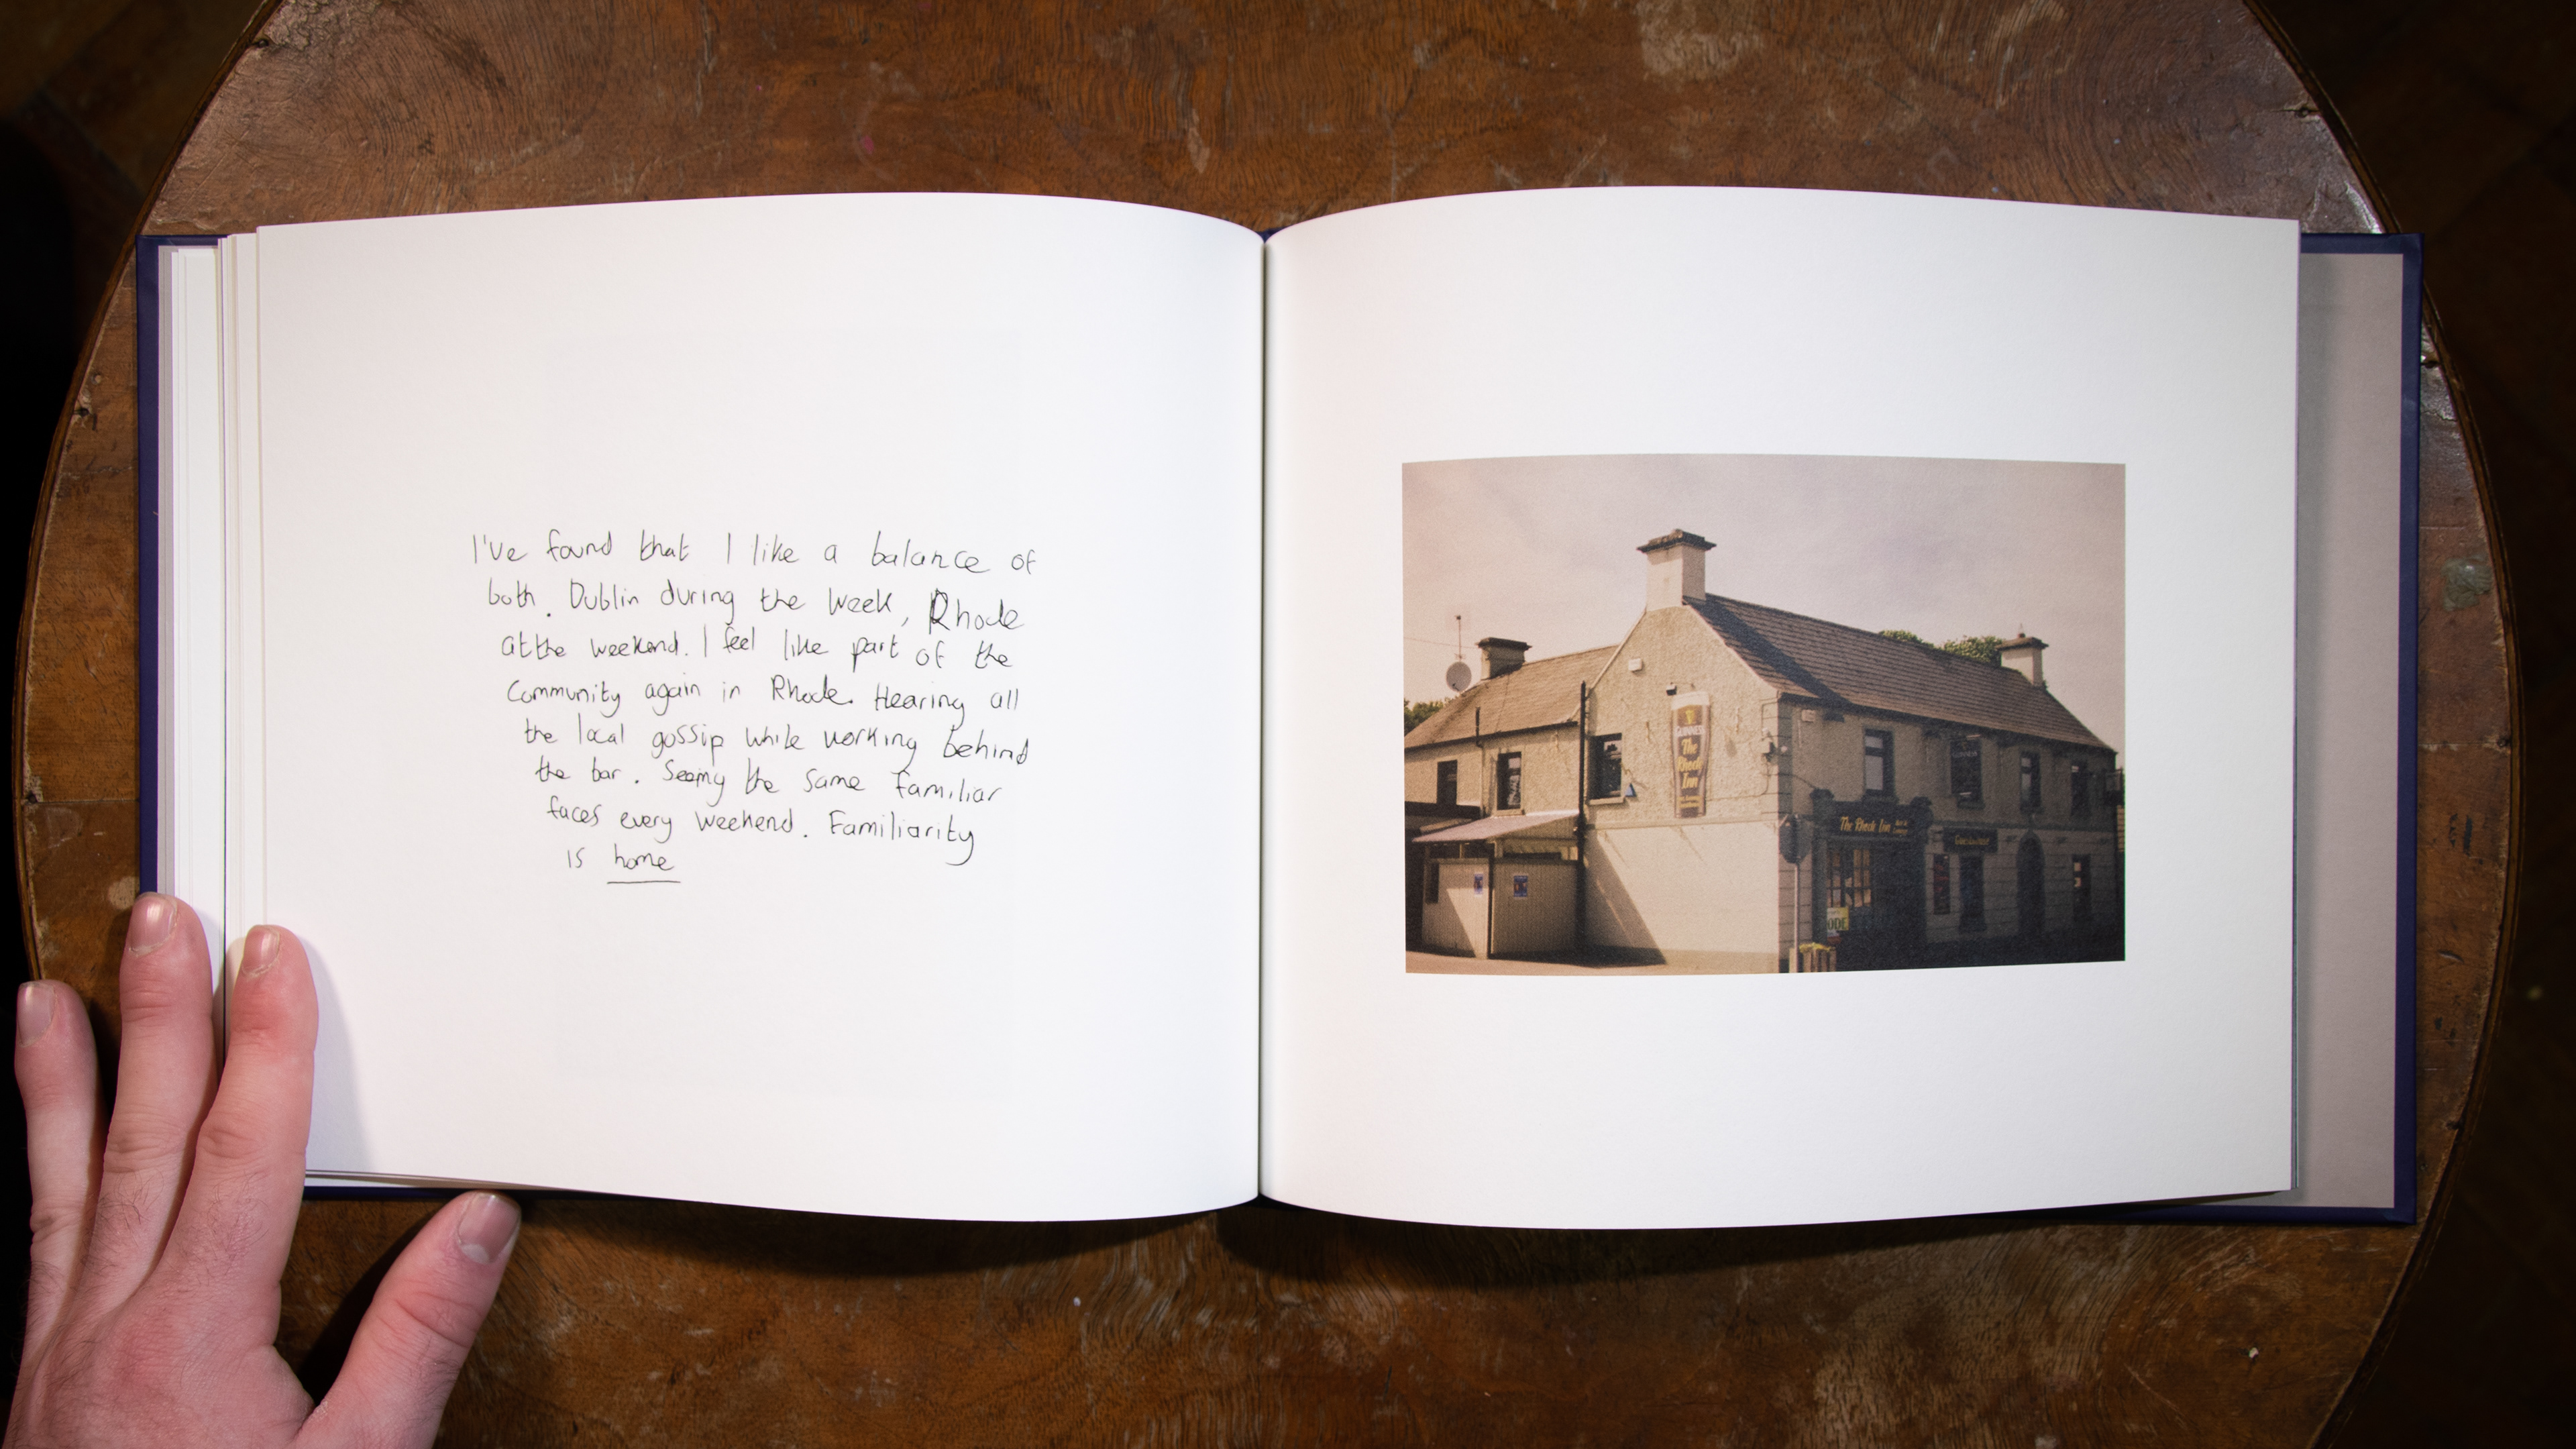 I've found that I like a balance of
both. Dublin during the week, Rhode
at the weekend. I feel like part of the
community again in Rhode. Hearing all
the local gossip while working behind
the bar. Seeing the same familiar
faces every weekend. Familiarity
is home
GUINNESS
The
Rhode
Inn
The Rhode Inn
ODE